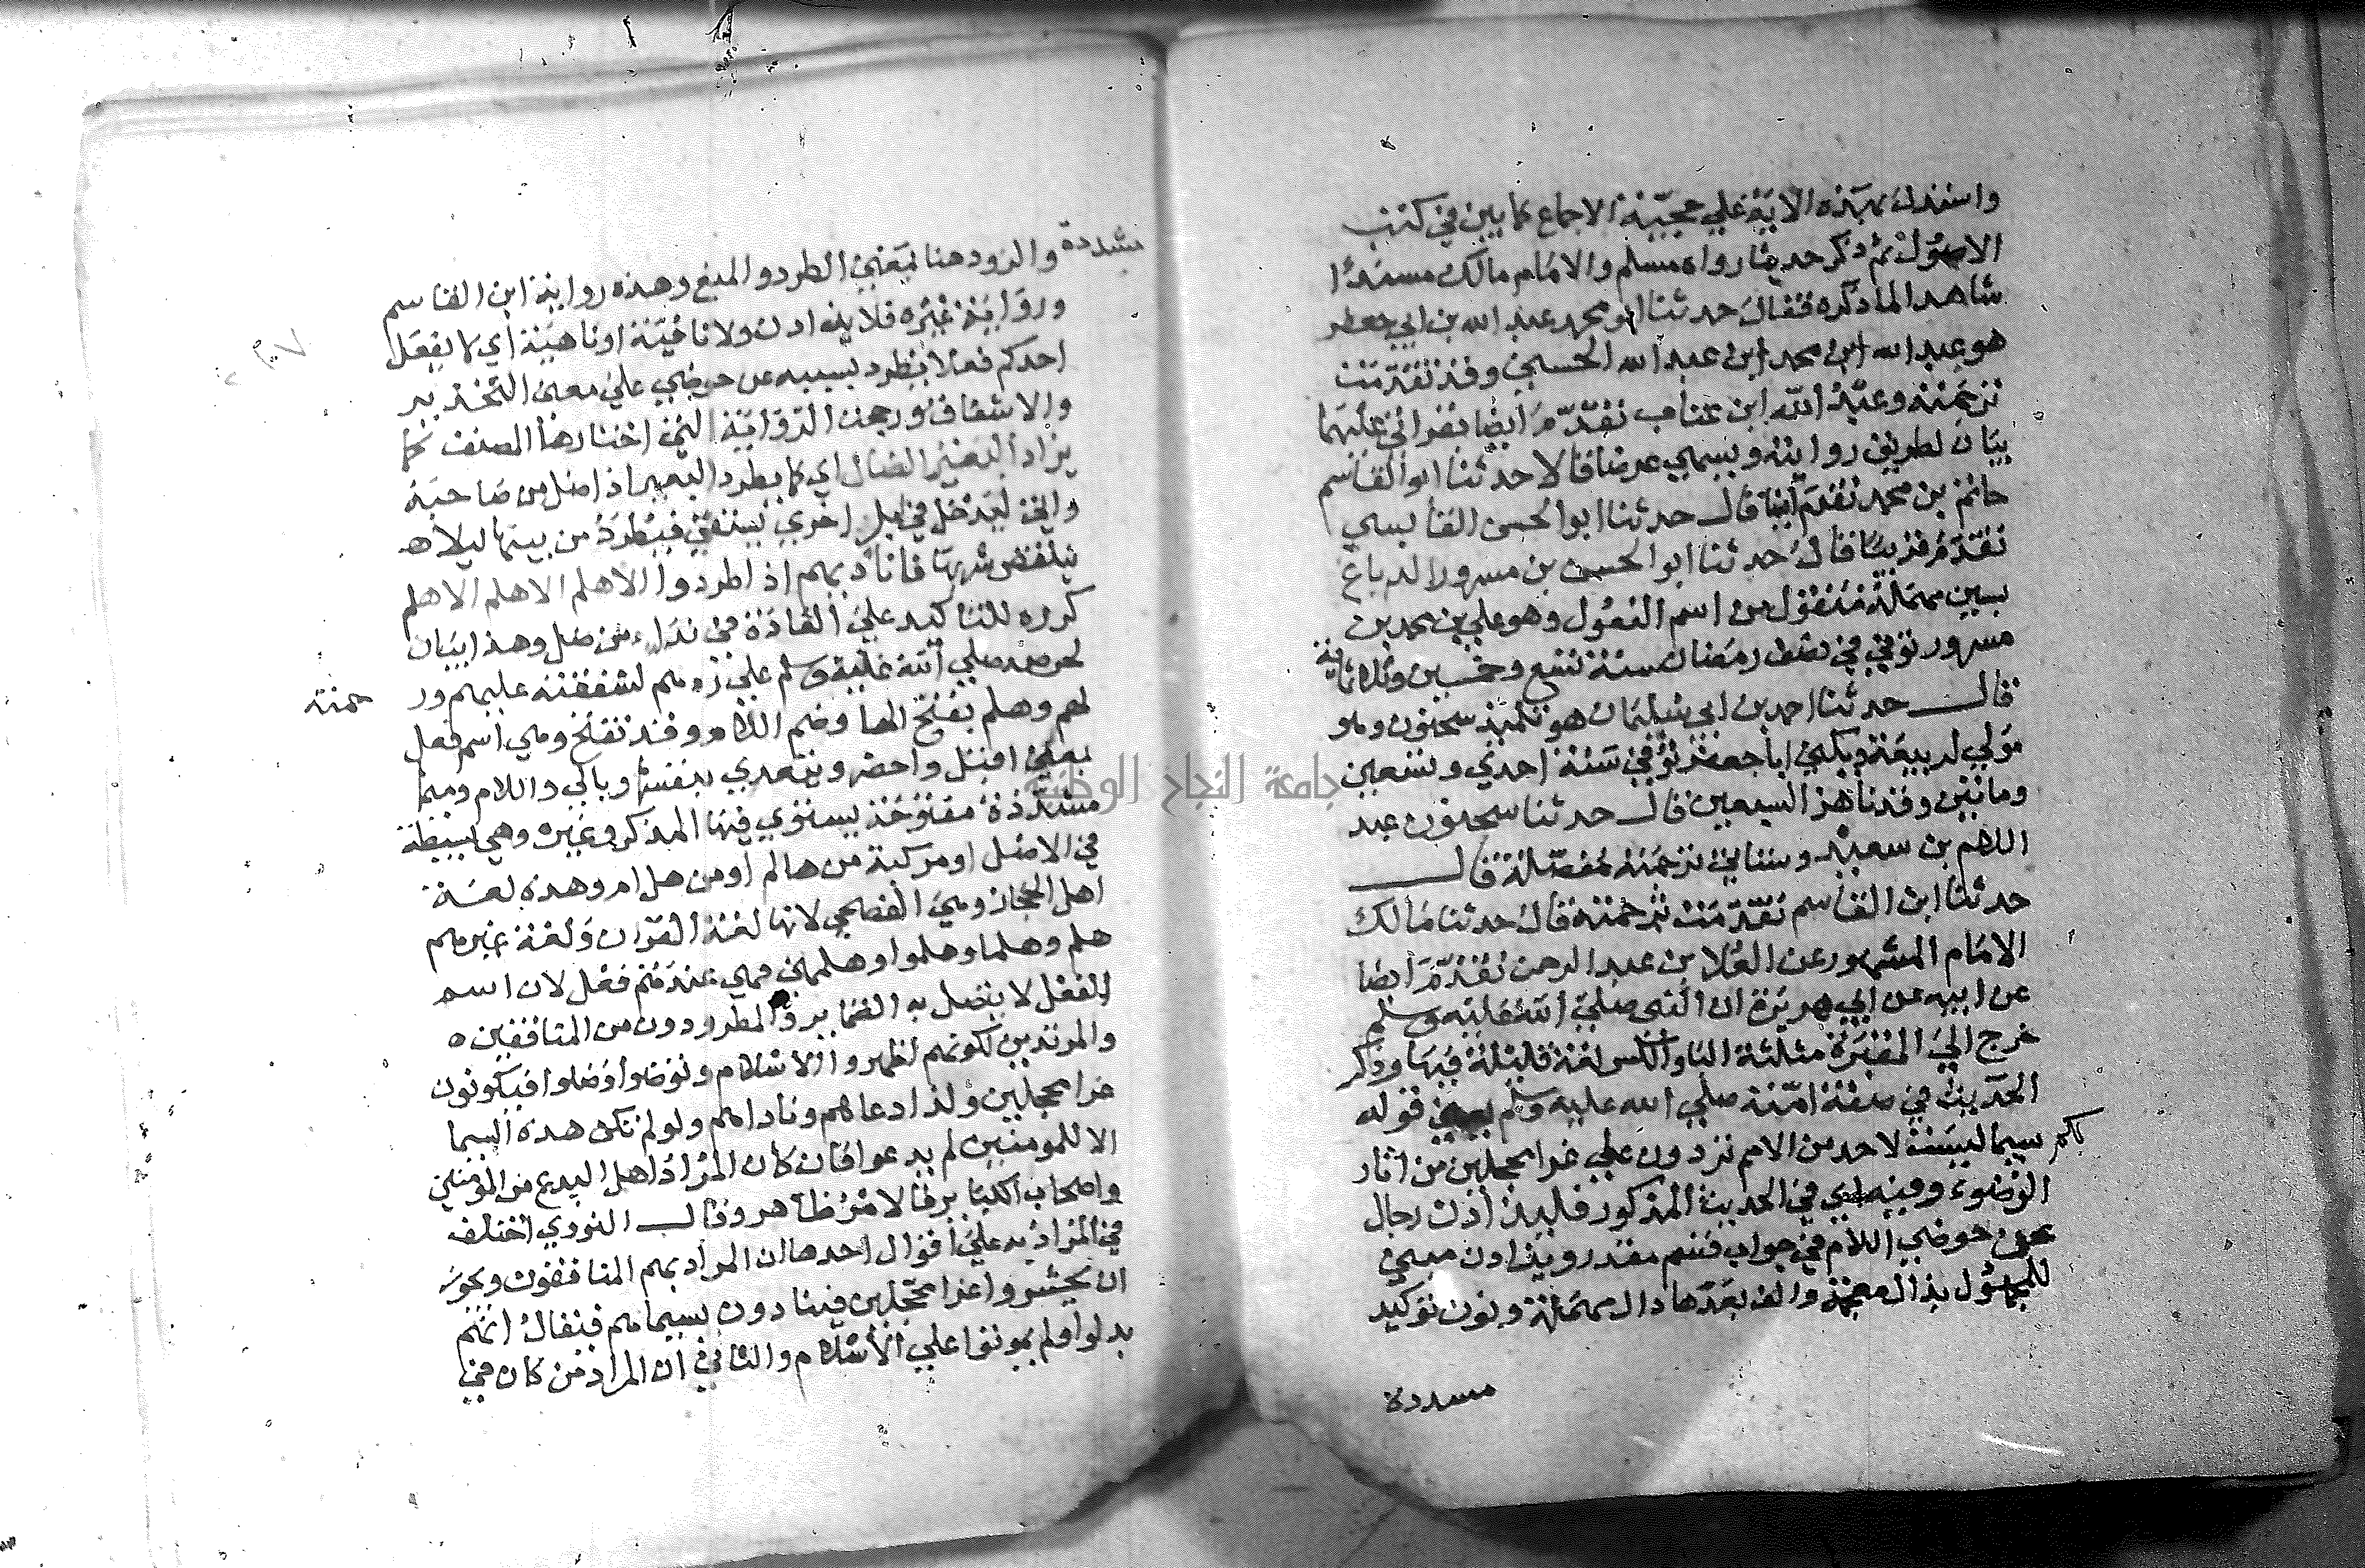 واستدل بهذه الاية علي حجية الاجماع كما بين في كتب
الاصول ثم ذكر حديثا رواه مسلم والامام مالك مسندا
شاهدا لما ذكره فقال حدثنا ابو محمد عبد الله بن ابي جعفر
هو عبد الله ابن محمد ابن عبد الله الحسبي وقد تقدمت
ترجمته وعبد الله ابن عتاب تقدم ايضا بقراتي عليهما
بيان لطريق روايته ويسمي عرضا قالا حدثنا ابو القاسم
حاتم بن محمد تقدم ايضا قال حدثنا ابو الحسن القابسي
تقدم قريبا قال حدثنا ابو الحسن بن مسرور الدباغ
بسين مهملة منقول من اسم المفعول وهو علي بن محمد بن
مسرور توفي في نصف رمضان سنة تسع وخمسين وثلاثماية
قال حدثنا احمد بن ابي سليمان هو تلميذ سحنون وهو
مولي لربيعة ويكني ابا جعفر توفي سنة احدي وتسعين
وماتين وقد ناهز السبعين قال حدثنا سحنون عبد
السلام بن سعيد وستاتي ترجمته مفصلة قال
حدثنا ابن القاسم تقدمت ترجمته قال حدثنا مالك
الامام المشهور عن العلا بن عبد الرحمن تقدم ايضا
عن ابيه عن ابي هريرة ان النبي صلي الله عليه وسلم
خرج الي المقبرة مثلثة البا والكسر لغة قليلة فيها وذكر
الحديث في صفة امته صلي الله عليه وسلم يعني قوله
لكم سيما ليست لاحد من الامم تردون علي غرا محجلين من اثار
الوضوء وفيه اي في الحديث المذكور فليذادن رجال
عن حوضي اللام في جواب قسم مقدر ويذادن مبني
للمجهول بذال معجمة والف بعدها دال مهملة ونون توكيد
مشددة
مشددة والذود هنا بمعني الطرد والمنع وهذه رواية ابن القاسم
ورواية غيره فلا يذادن ولا نافية او ناهية اي لا يفعل
احدكم فعلا يطرد بسببه عن حوضي علي معني التحذير
والاشفاق ورجحت الرواية التي اختارها المصنف كما
يزاد البعير الضال اي كما يطرد البعير اذا ضل من صاحبه
واتي ليدخل في ابل اخري يستقي فيطرد من بينها ليلا
فاناديهم اذا طردوا الا هلم الا هلم
كرره للتاكيد علي القاذه من ضل وهذا بيان
لحرصه صلي الله عليه وسلم علي لشفقته عليهم ور
حمته
لهم وهلم بفتح الها وضم اللام وقد تفتح وهي اسم فعل
بمعني اقبل واحضر ويتعدي بنفسه وبالي واللام وميما
مشددة مفتوحة يستوي فيها المذكر وغيره وهي بسيطة
في الاصل او مركبة من هالم او من هل ام وهذه لغة
اهل الحجاز وهي الفصحي لانها لغة القران ولغة غيرهم
هلم وهلما وهلموا وهلممن فهي عندهم فعل لان اسم
الفعل لا يتصل به الضماير والمطرودون من المنافقين
والمرتدين لكونهم اظهروا الاسلام وتوضوا وصلوا فيكونون
غرا محجلين ولذا دعاهم وناداهم ولو لم تكن هذه السيما
الا للمومنين لم يدعوا فان كان المراد اهل البدع من المومنين
واصحاب الكباير فالامر ظاهر وقال النووي اختلف
في المراد به علي اقوال احدها ان المراد بهم المنافقون ويجوز
ان يحشروا غرا محجلين فينادون بسيماهم فيقال انهم
بدلوا ولم يموتوا علي الاسلام والثاني ان المراد من كان في
جامعة النجاح الوطنية